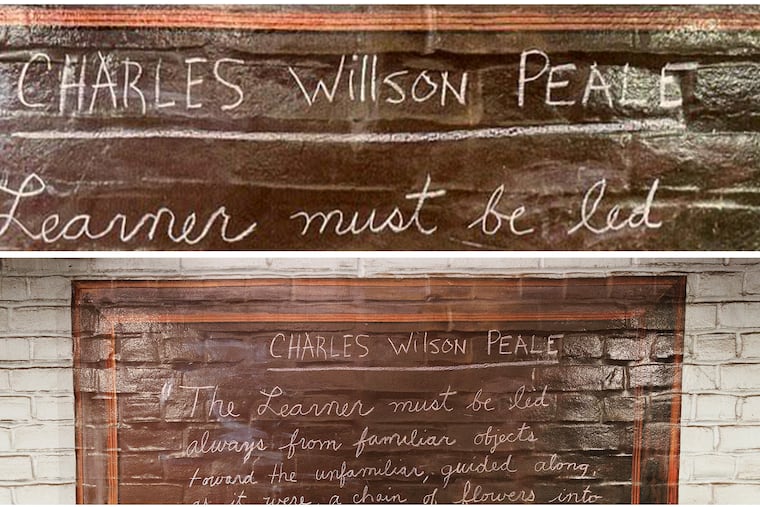 CHARLES Willson PEALE
Learner must be led
CHARLES Wilson PEALE
"The Learner must be led
always from familiar objects
toward the unfamiliar, guided along,
as it were, a chain of flowers into